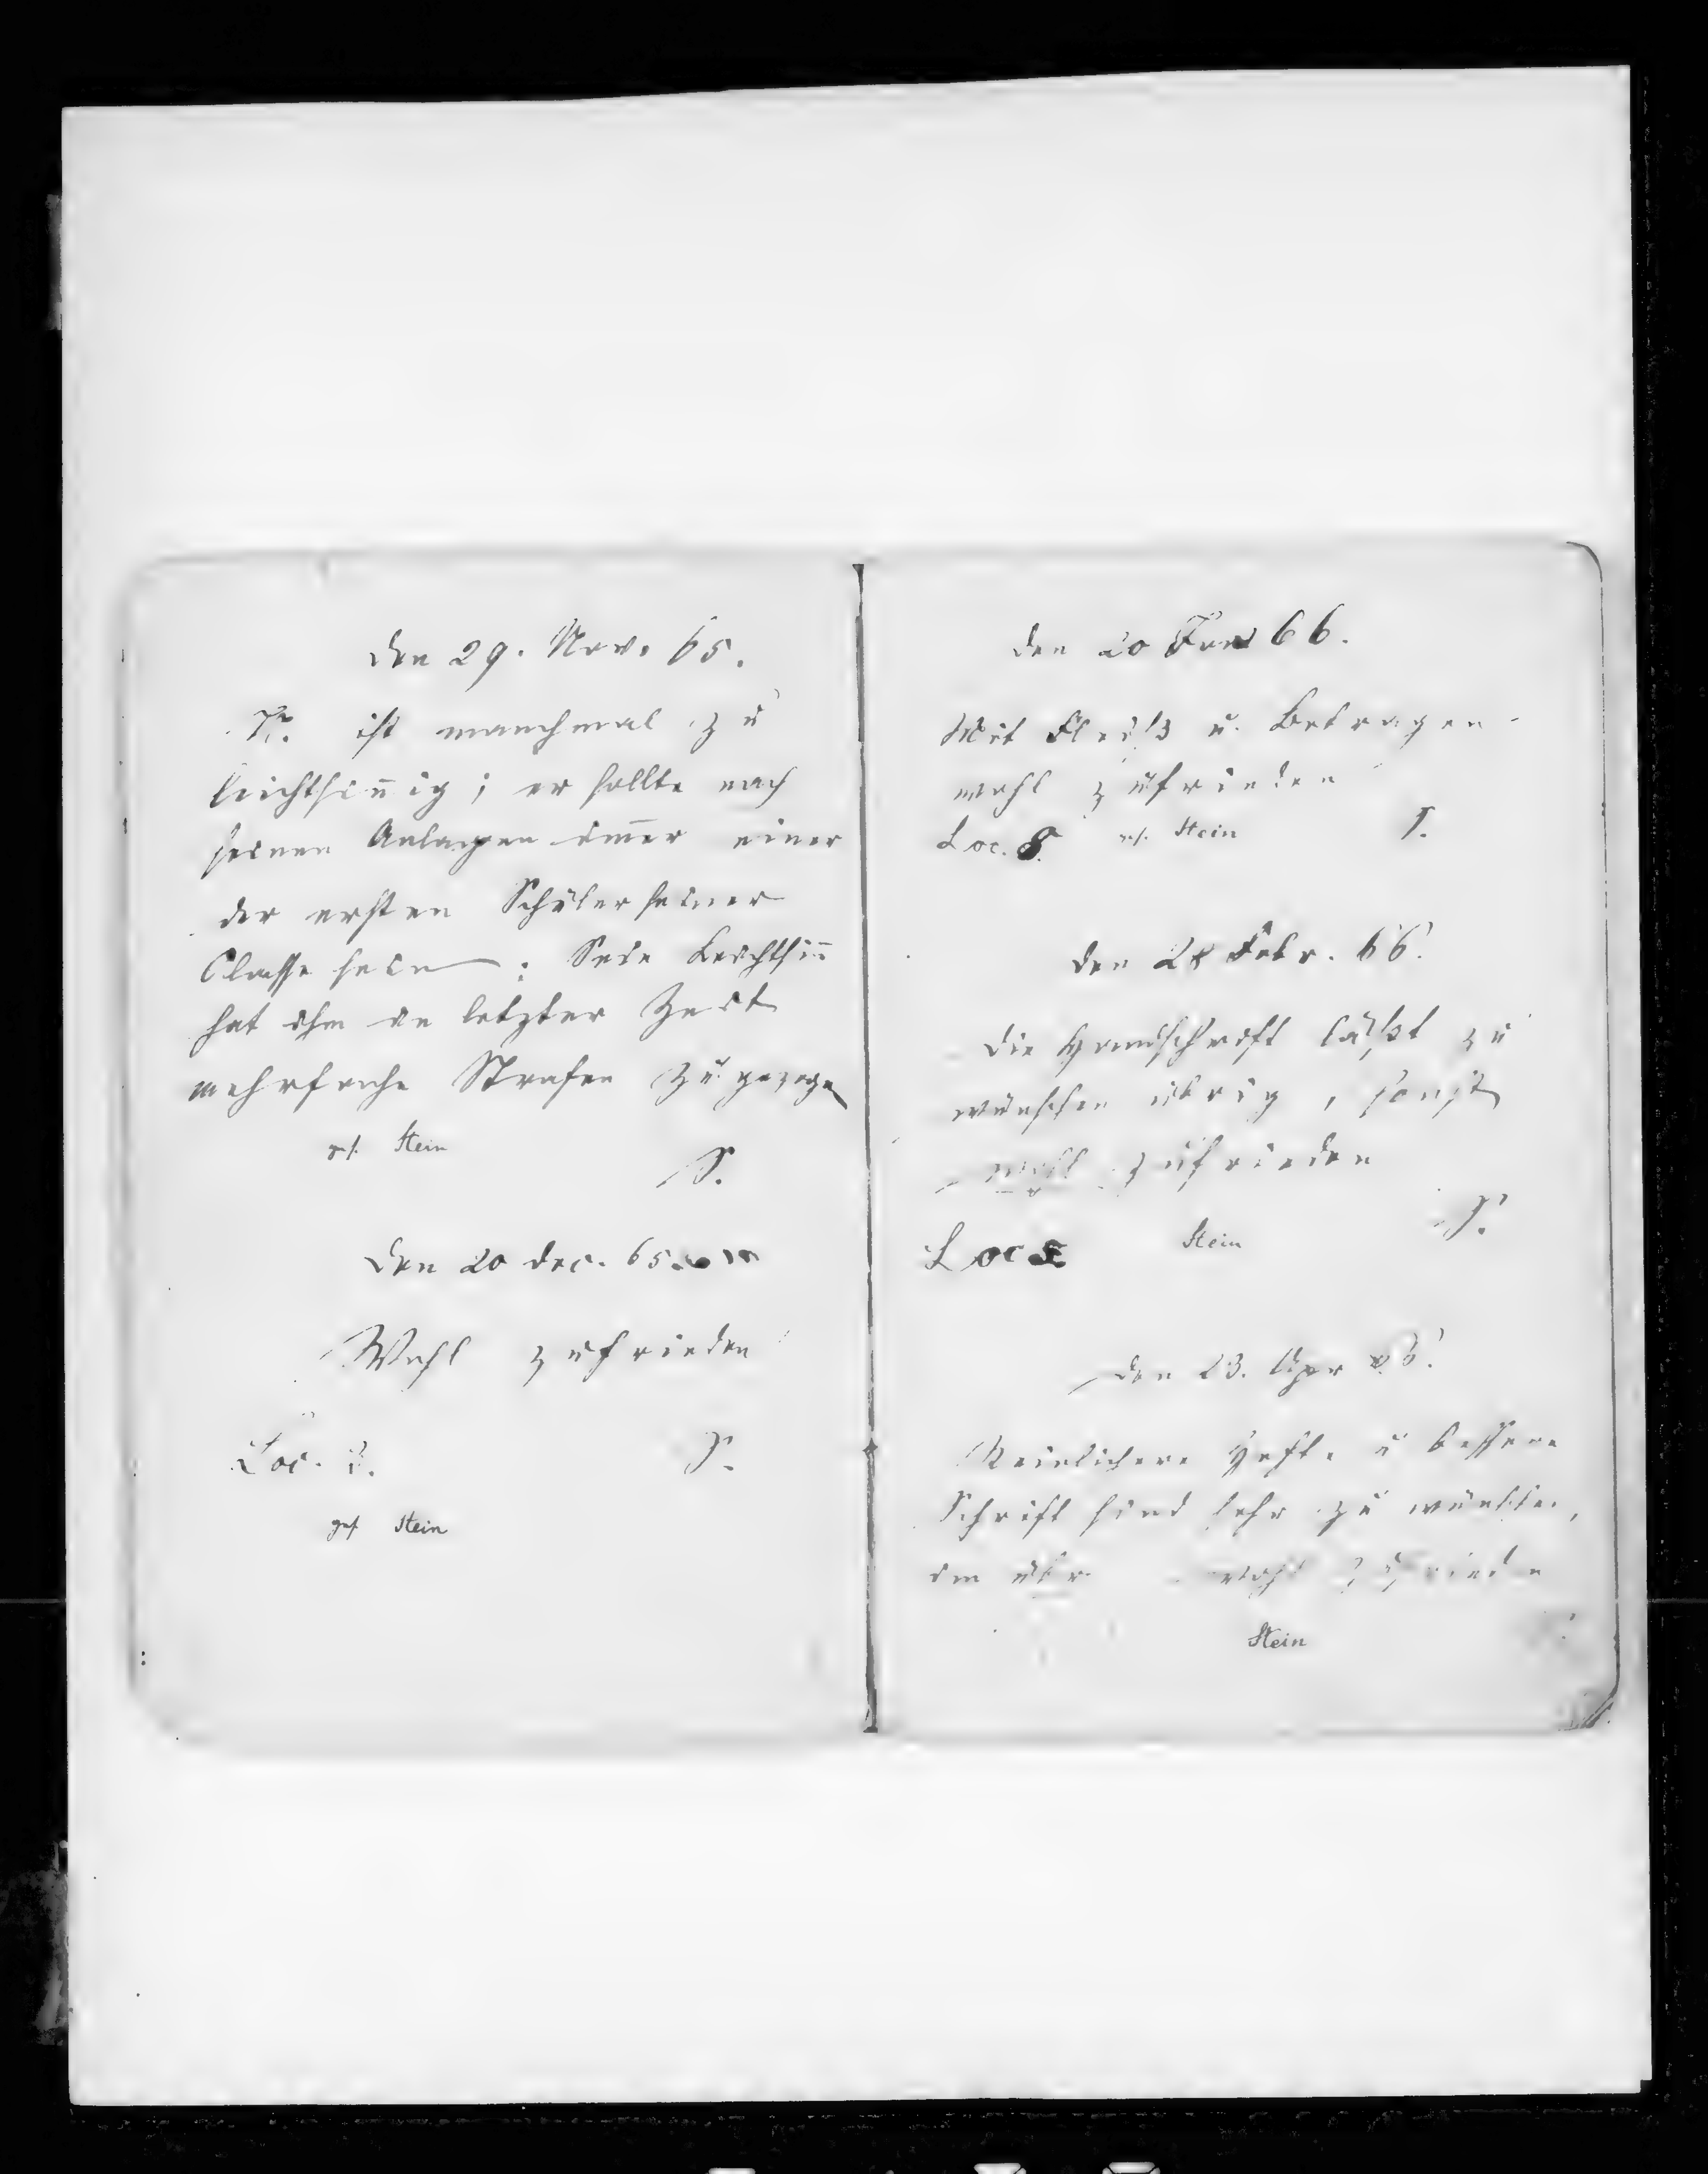 den 29. Nov. 65.
St. ist manchmal zu
leichtsin̄ig; er sollte nach
seinen Anlagen im̄er einer
der ersten Schüler seiner
Classe sein; Sein Leichtsin̄
hat ihm in letzter Zeit
mehrfache Strafen zugezogen
ges. Stein
S.
den 20 Dec. 65.
Wohl zufrieden
Loc. 3.
S.
ges. Stein
den 20 Jan 66.
Mit Fleiß u. Betragen
wohl zufrieden
Loc. 8. ges. Stein S.
den 28 Febr. 66.
die Handschrift läßt zu
wünschen übrig, sonst
wohl zufrieden
S.
Loc Stein
den 23. Apr
Reinlichere Hefte u bessere
Schrift sind sehr zu wünschen,
im übr wohl zufrieden
Stein